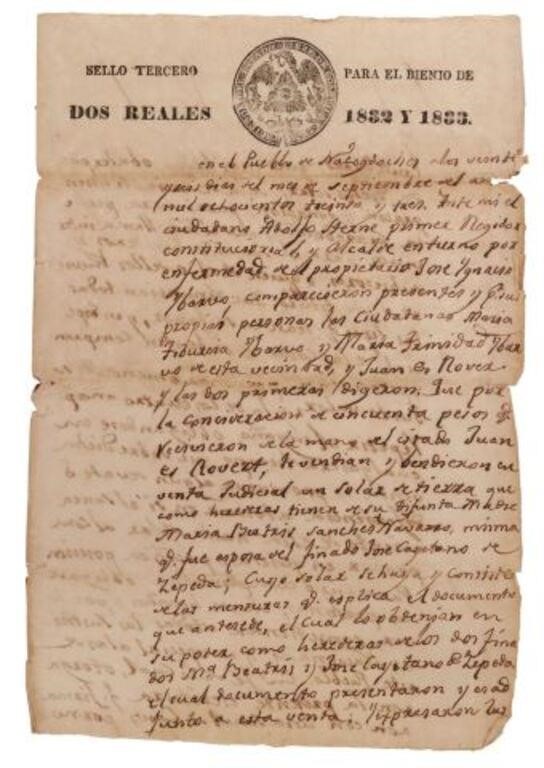 SELLO TERCERO
PARA EL BIENIO DE
DOS REALES
1832 Y 1833.
en el Pueblo de Nacogdoches a los veinti
dias del mes de Septiembre del
mil ochocientos treinta y tres. Ante mi el
ciudadano Adolfo Sterne primer Regidor
constitucional, y Alcalde en turno por
enfermedad del propietario José Ignacio
Ybarvo, comparecieron presentes y
propias personas las Ciudadanas Maria
Ybarvo y Maria Trinidad Ybar
vo de esta vecindad, y Juan
y las dos primeras digeron: Que por
la Conseracion de cincuenta pesos q.
recivieron de la mano del citado Juan
vendian y vendieron en
venta Judicial un Solar de tierra que
como herederas tienen de su difunta Madre
Maria Beatris Sanches Navarro, misma
q. fue esposa del finado José Cayetano de
Zepeda; Cuyo Solar y Consiste
de las mensuras q. esplica el documento
que antesede, el Cual lo obtenian en
su poter como herederas de los dos fina
dos Ma. Beatris y José Cayetano de Zepeda
el cual documento presentaron y es ad
junto a esta venta;